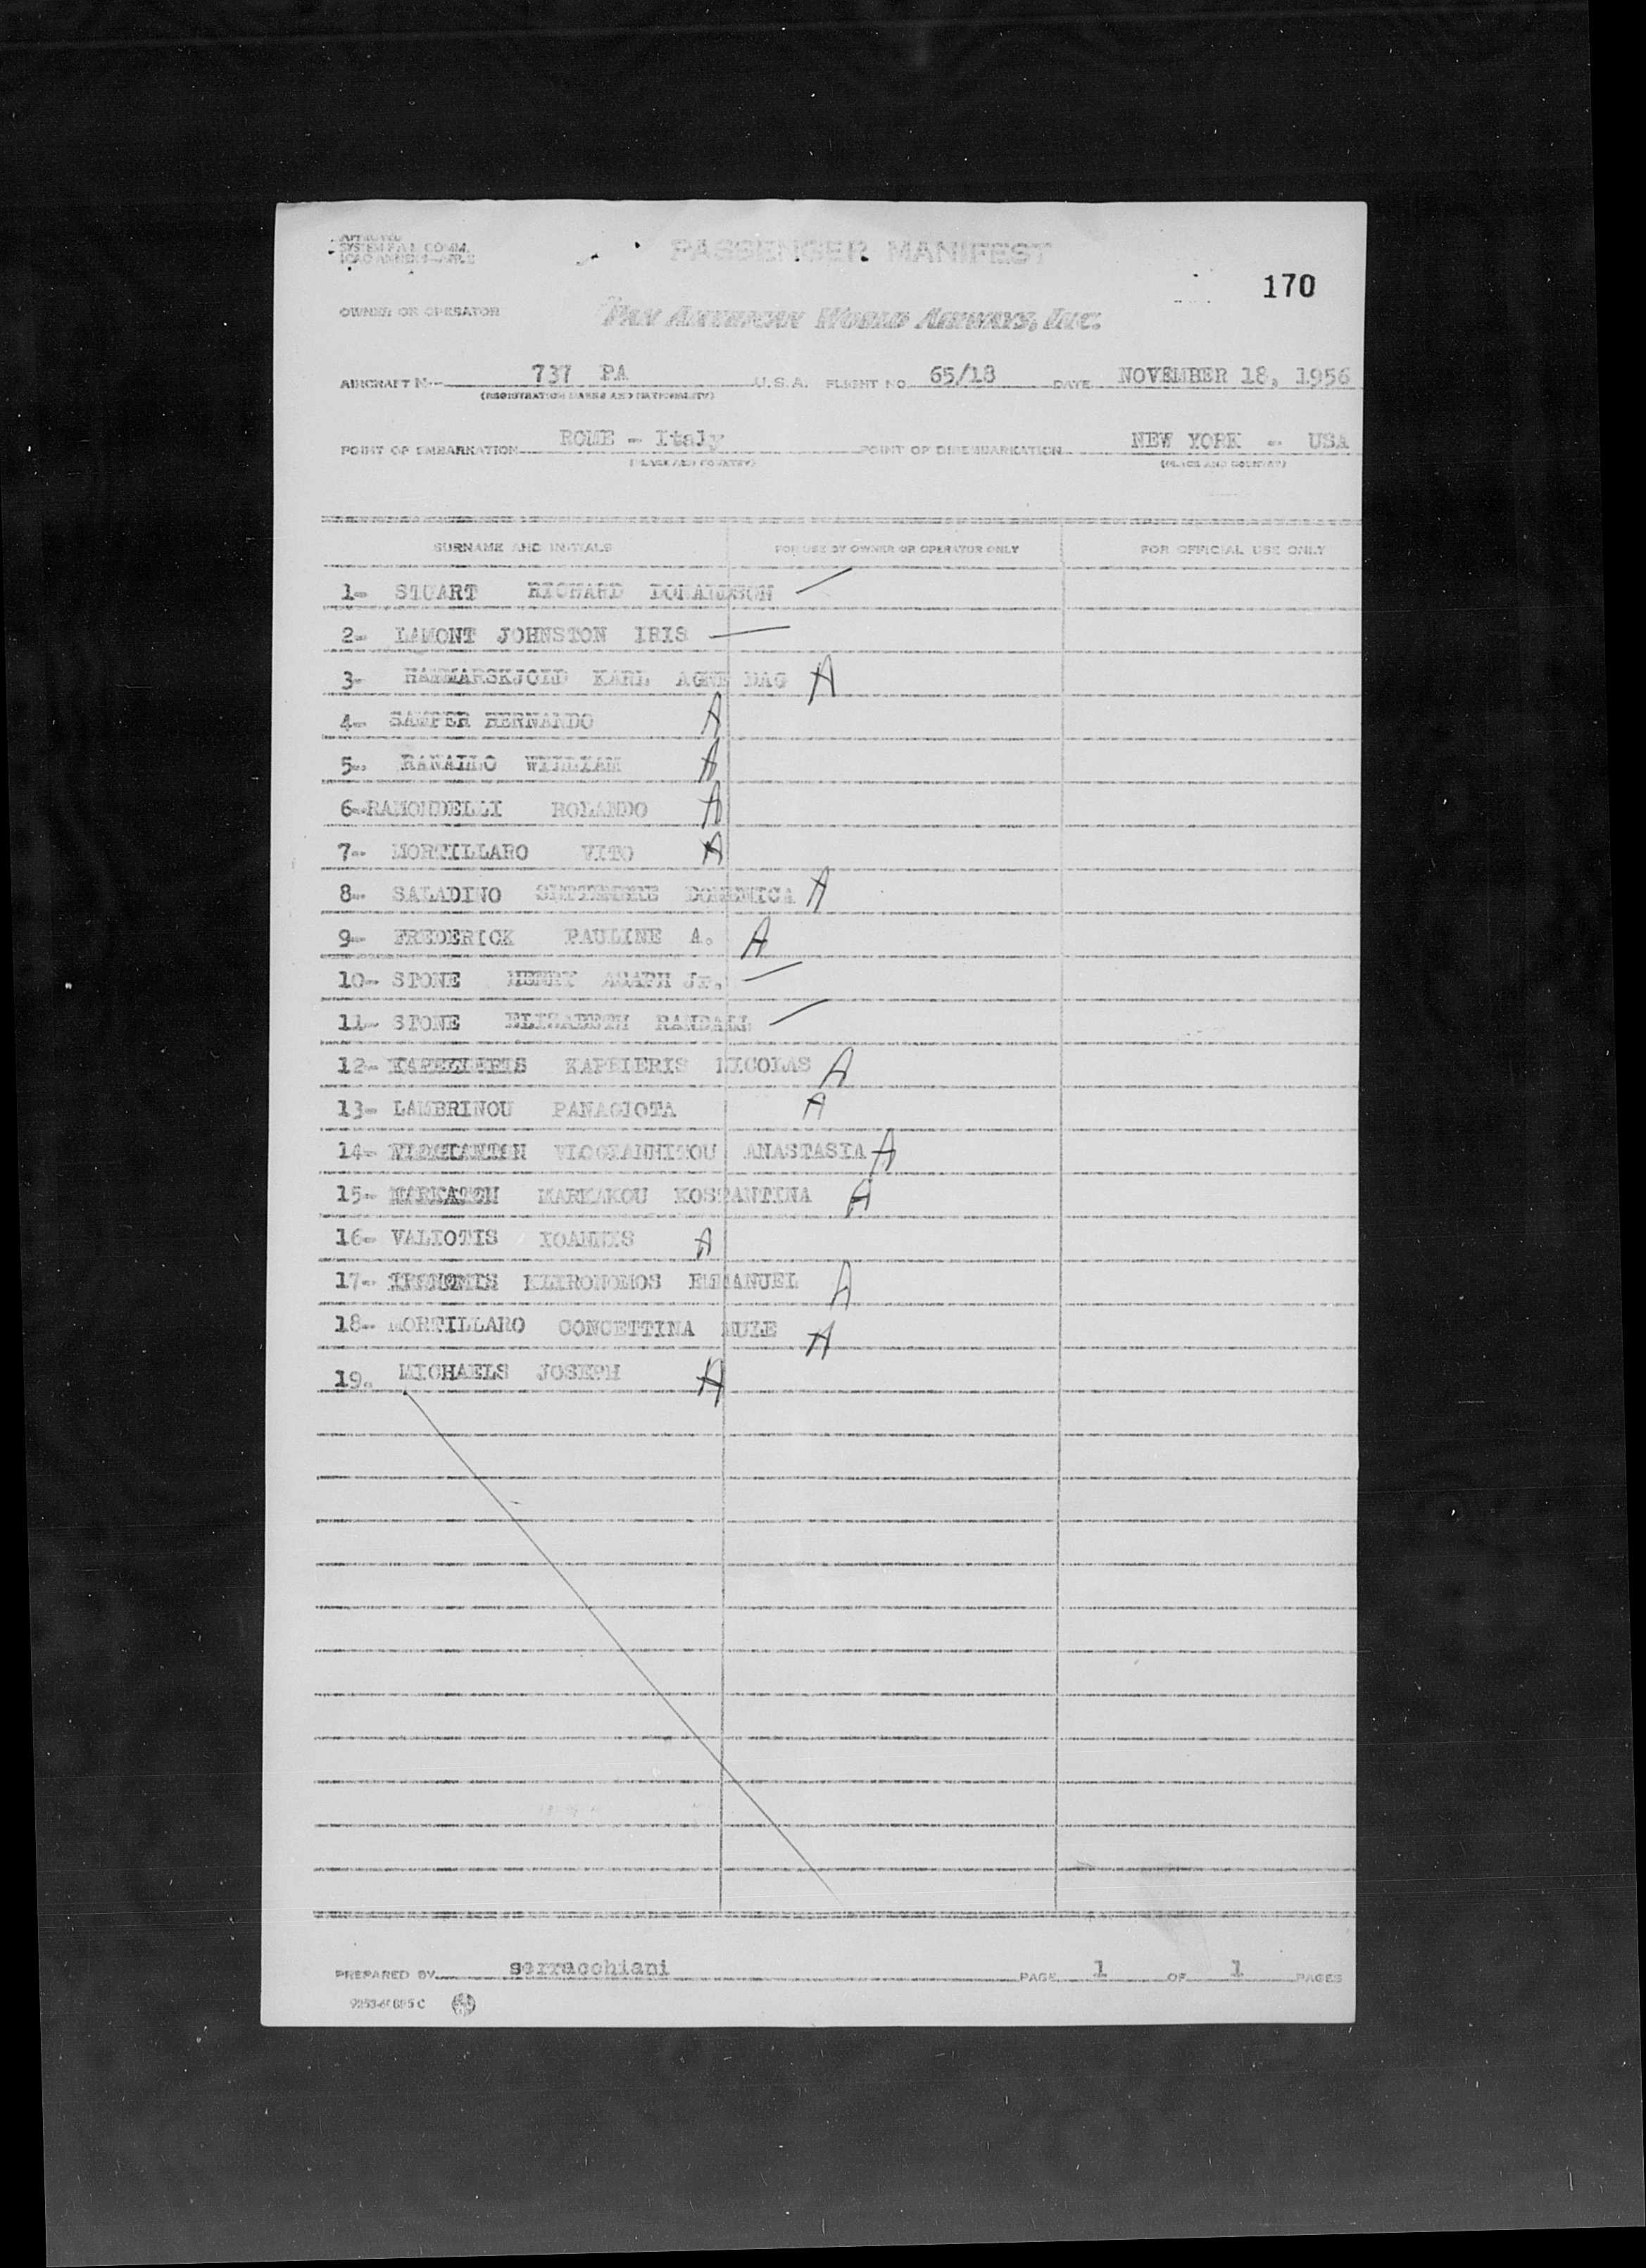 APPROVED
SYSTEM F.A.L. COMM.
ICAO ANNEX 9—APP. 2
PASSENGER MANIFEST
170
OWNER OR OPERATOR PAN AMERICAN WORLD AIRWAYS, INC.
AIRCRAFT N-- 737 PA U.S.A. FLIGHT NO. 65/18 DATE NOVEMBER 18, 1956
(REGISTRATION MARKS AND NATIONALITY)
POINT OF EMBARKATION ROME - Italy POINT OF DISEMBARKATION NEW YORK - USA
(PLACE AND COUNTRY) (PLACE AND COUNTRY)
SURNAME AND INITIALS FOR USE BY OWNER OR OPERATOR ONLY FOR OFFICIAL USE ONLY
1- STUART RICHARD DONALDSON
2- LAMONT JOHNSTON IRIS
3- HAMMARSKJOLD KARL AGNE DAG A
4- SAMPER HERNANDO A
5- RANALLO WILLIAM A
6- RAMONDELLI ROLANDO A
7- MORTILLARO VITO A
8- SALADINO DOMENICA A
9- FREDERICK PAULINE A. A
10- STONE HENRY Jr.
11- STONE ELIZABETH RANDALL
12- KAPSIERIS NICOLAS A
13- LAMBRINOU PANAGIOTA A
14- VLOGIANNITOU ANASTASIA A
15- MARKAKOU KOSTANTINA A
16- VALIOTIS IOANNIS A
17- KLIRONOMOS EMMANUEL A
18- MORTILLARO CONCETTINA MULE A
19. MICHAELS JOSEPH A
PREPARED BY serracchiani PAGE 1 OF 1 PAGES